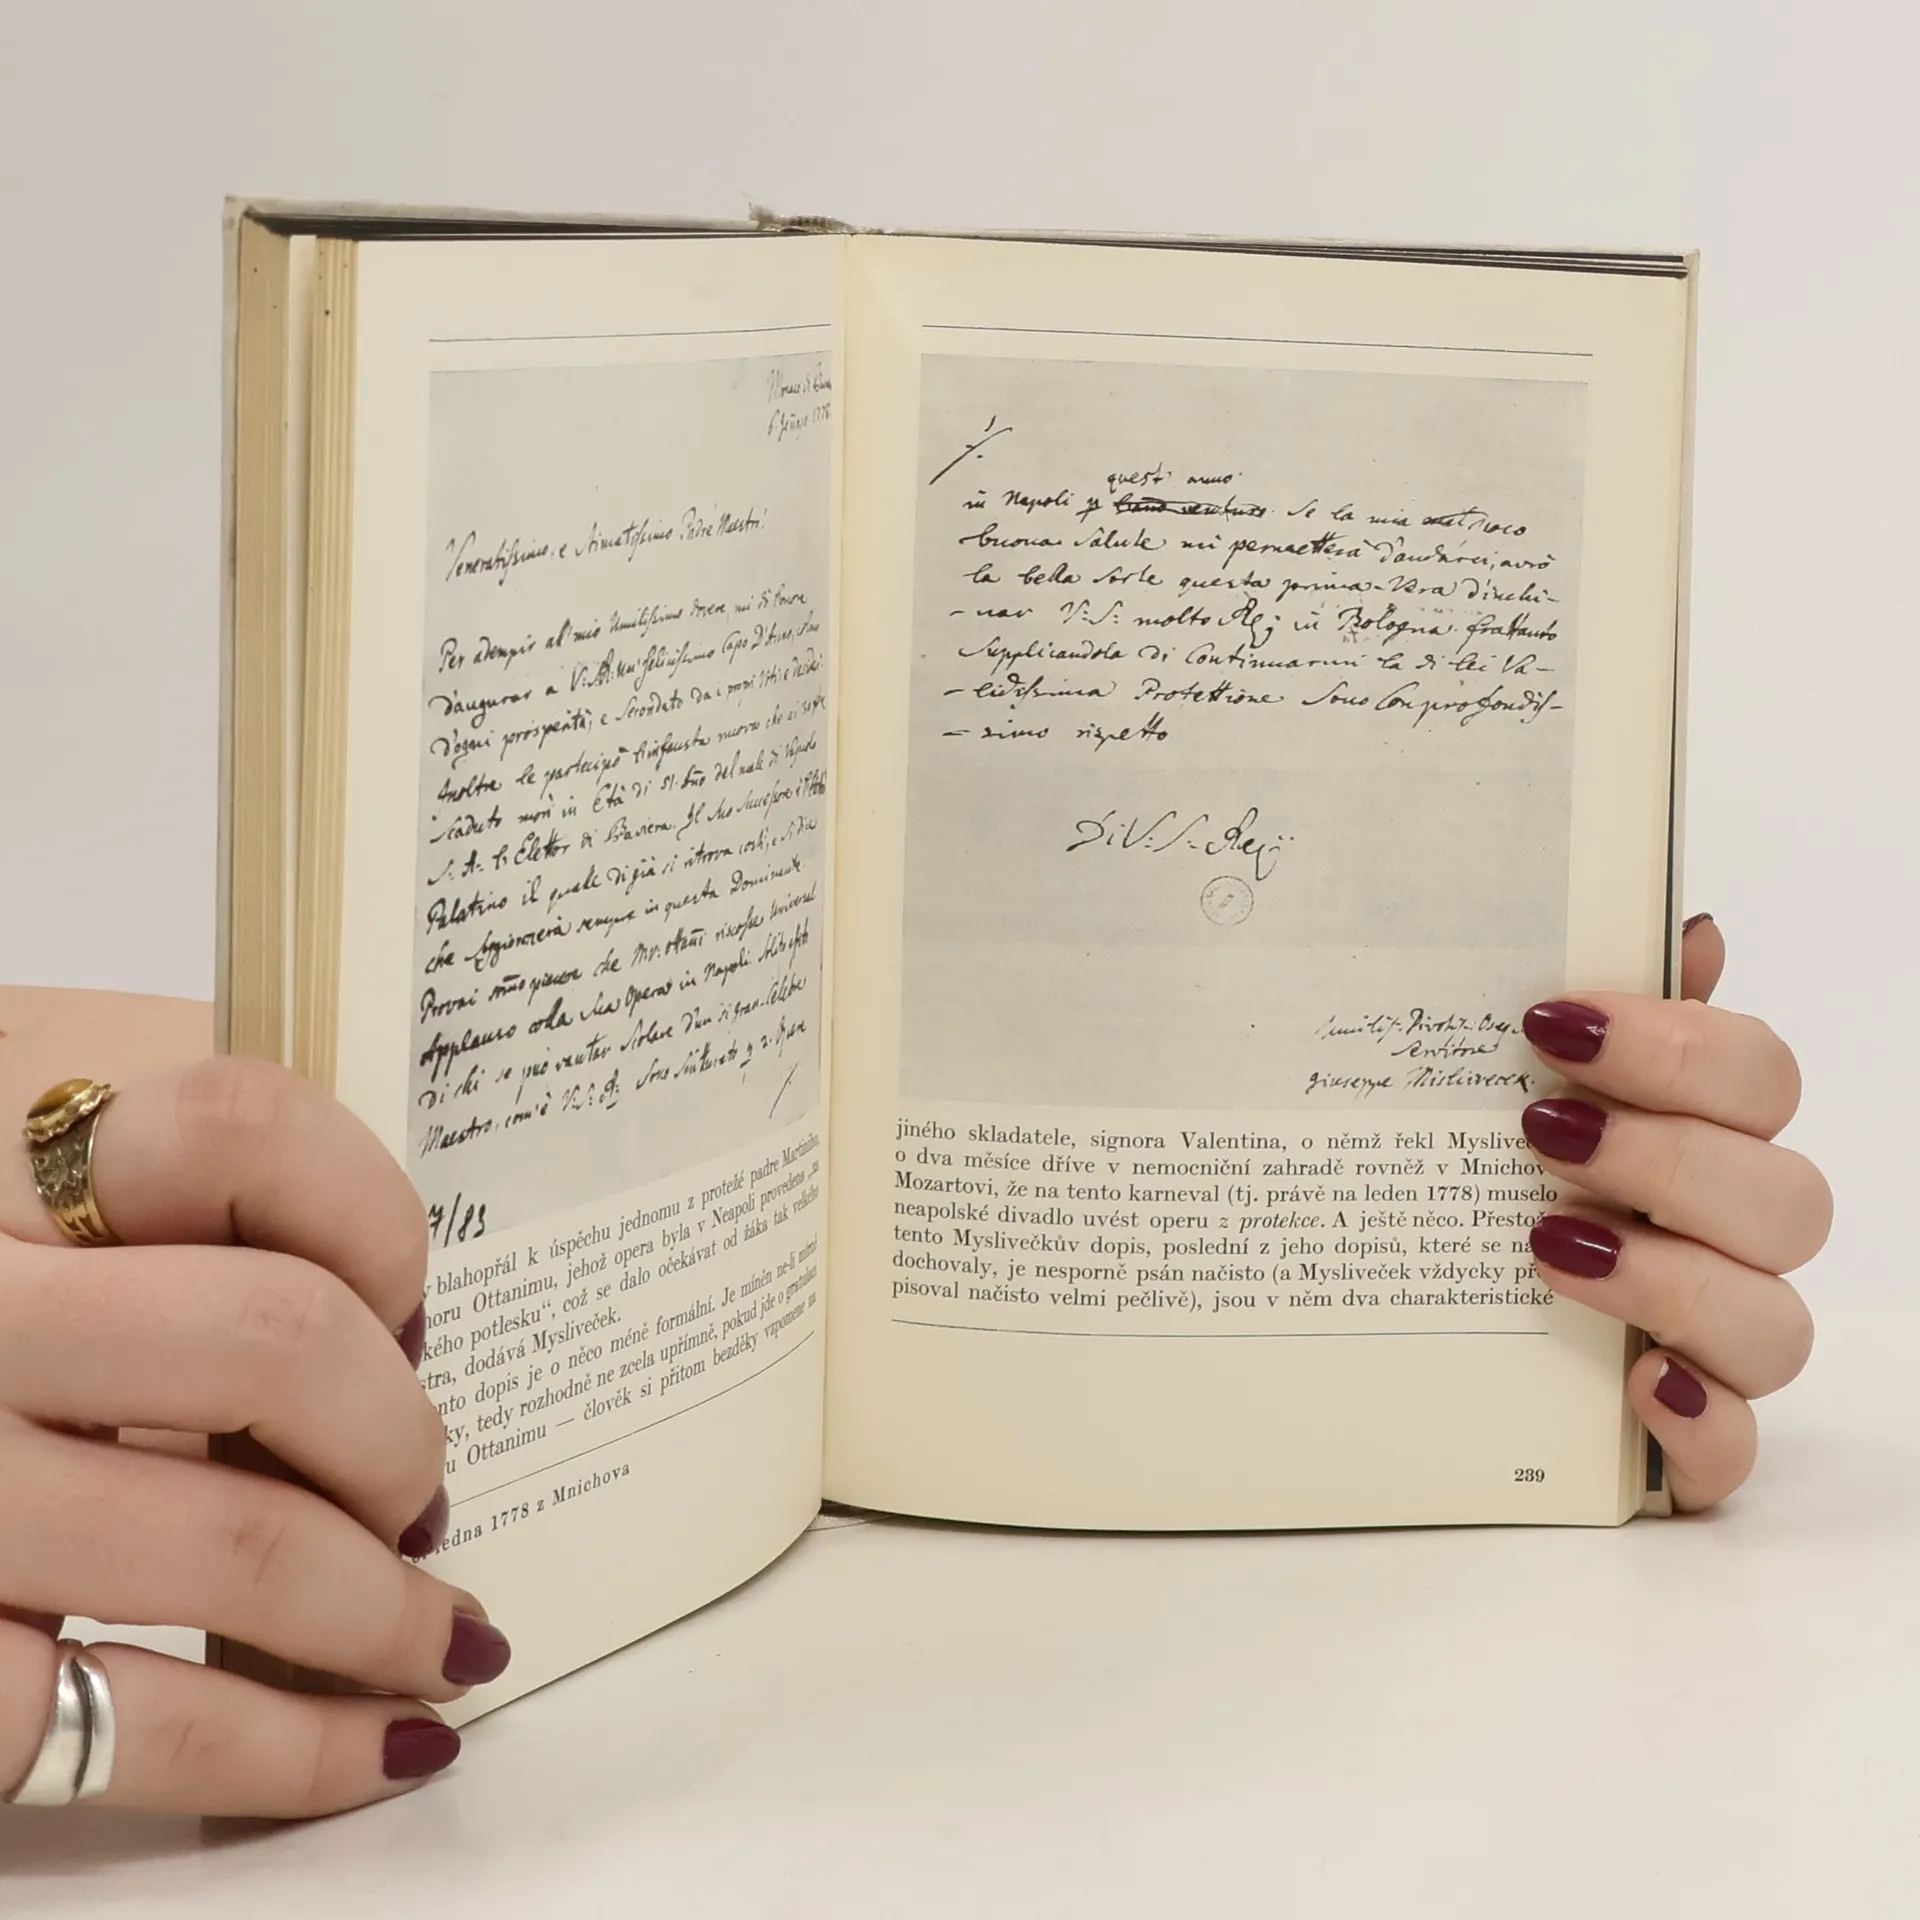 6. Genngo 1778
Veneratissimo, e Stimatissimo Padre Maestro!
Per adempir al' mio Umilissimo dovere, mi dò l'onore
d'augurar a un' Felicissimo Capo D'Anno, colmo
d'ogni prosperità; e secondato da i propri Voti e desideri.
Inoltre le partecipò l'infausta nuova che ai 30 del
scaduto morì in Età di 51. del male di Vajuolo
S. A. l'Elettor di Baviera. Il suo Successore è l'Elettor
Palatino il quale di già si ritrova costì, e si dice
che soggiornerà sempre in questa Dominante.
Provai piacere che Mr: Ottani riscosse Universal
Applauso colla sua Opera in Napoli.
Di chi se può vantar Scolare d'un si gran Celebre
Maestro, com'è V: S: Sono 2. Opere
7/83
v blahopřál k úspěchu jednomu z protežé padre Martiniho,
noru Ottanimu, jehož opera byla v Neapoli provedena „za
kého potlesku“, což se dalo očekávat od žáka tak velkého
stra, dodává Mysliveček.
nto dopis je o něco méně formální. Je míněn ne-li mírně
ky, tedy rozhodně ne zcela upřímně, pokud jde o gratulaci
u Ottanimu — člověk si přitom bezděky vzpomene na
ledna 1778 z Mnichova
quest' anno
in Napoli p Se la mia poco
buona Salute mi permetterà d'andarci, avrò
la bella sorte questa prima-Vera d'inchi-
- nar V: S: molto in Bologna. frattanto
Supplicandola di Continuarmi la di lei Va-
- lidissima Protettione Sono Con profondis-
= simo rispetto
Di V: S:
Servitore
Giuseppe Misliwecek.
jiného skladatele, signora Valentina, o němž řekl Mysliveč
o dva měsíce dříve v nemocniční zahradě rovněž v Mnichov
Mozartovi, že na tento karneval (tj. právě na leden 1778) muselo
neapolské divadlo uvést operu z protekce. A ještě něco. Přestož
tento Myslivečkův dopis, poslední z jeho dopisů, které se ná
dochovaly, je nesporně psán načisto (a Mysliveček vždycky př
pisoval načisto velmi pečlivě), jsou v něm dva charakteristické
239